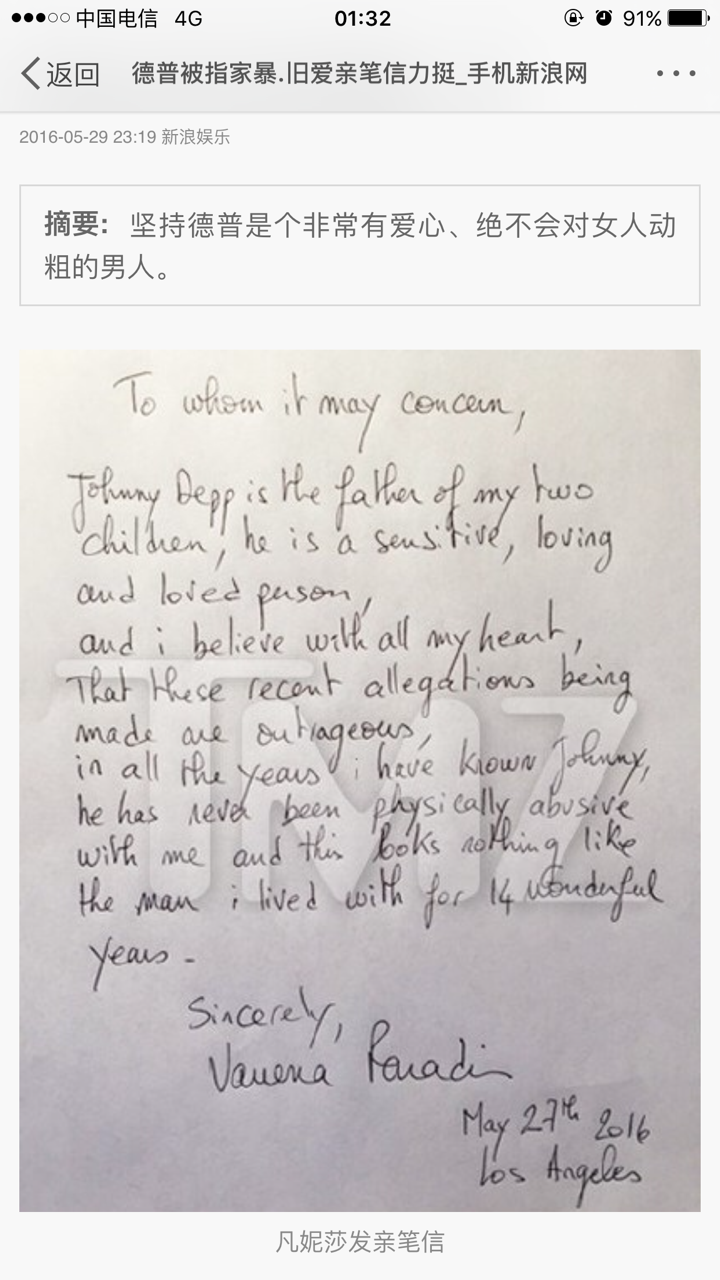 中国电信 4G 01:32 91%
返回 德普被指家暴.旧爱亲笔信力挺_手机新浪网
2016-05-29 23:19 新浪娱乐
摘要: 坚持德普是个非常有爱心、绝不会对女人动
粗的男人。
To whom it may concern,
Johnny Depp is the father of my two
children, he is a sensitive, loving
and loved person,
and i believe with all my heart,
That these recent allegations being
made are outrageous,
in all the years i have known Johnny,
he has never been physically abusive
with me and this looks nothing like
the man i lived with for 14 wonderful
years -
Sincerely,
Vanessa Paradis
May 27th 2016
Los Angeles
TMZ
凡妮莎发亲笔信